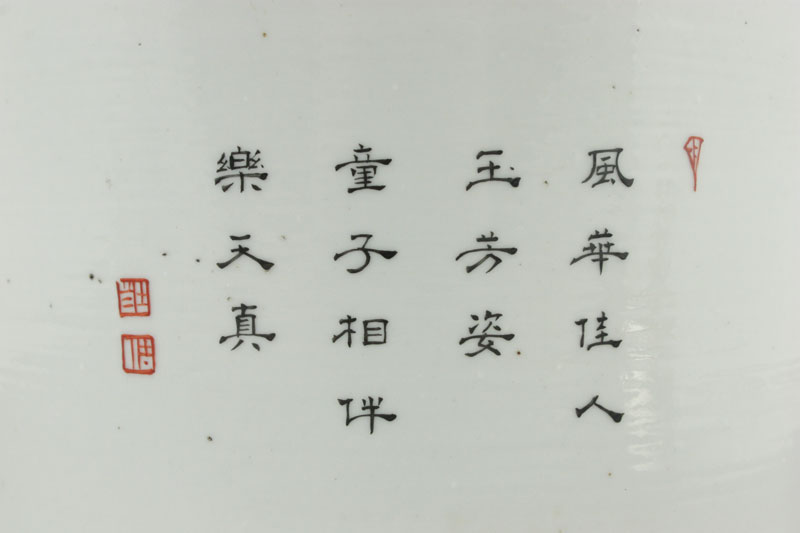 風華佳人
玉芳姿
童子相伴
樂天真